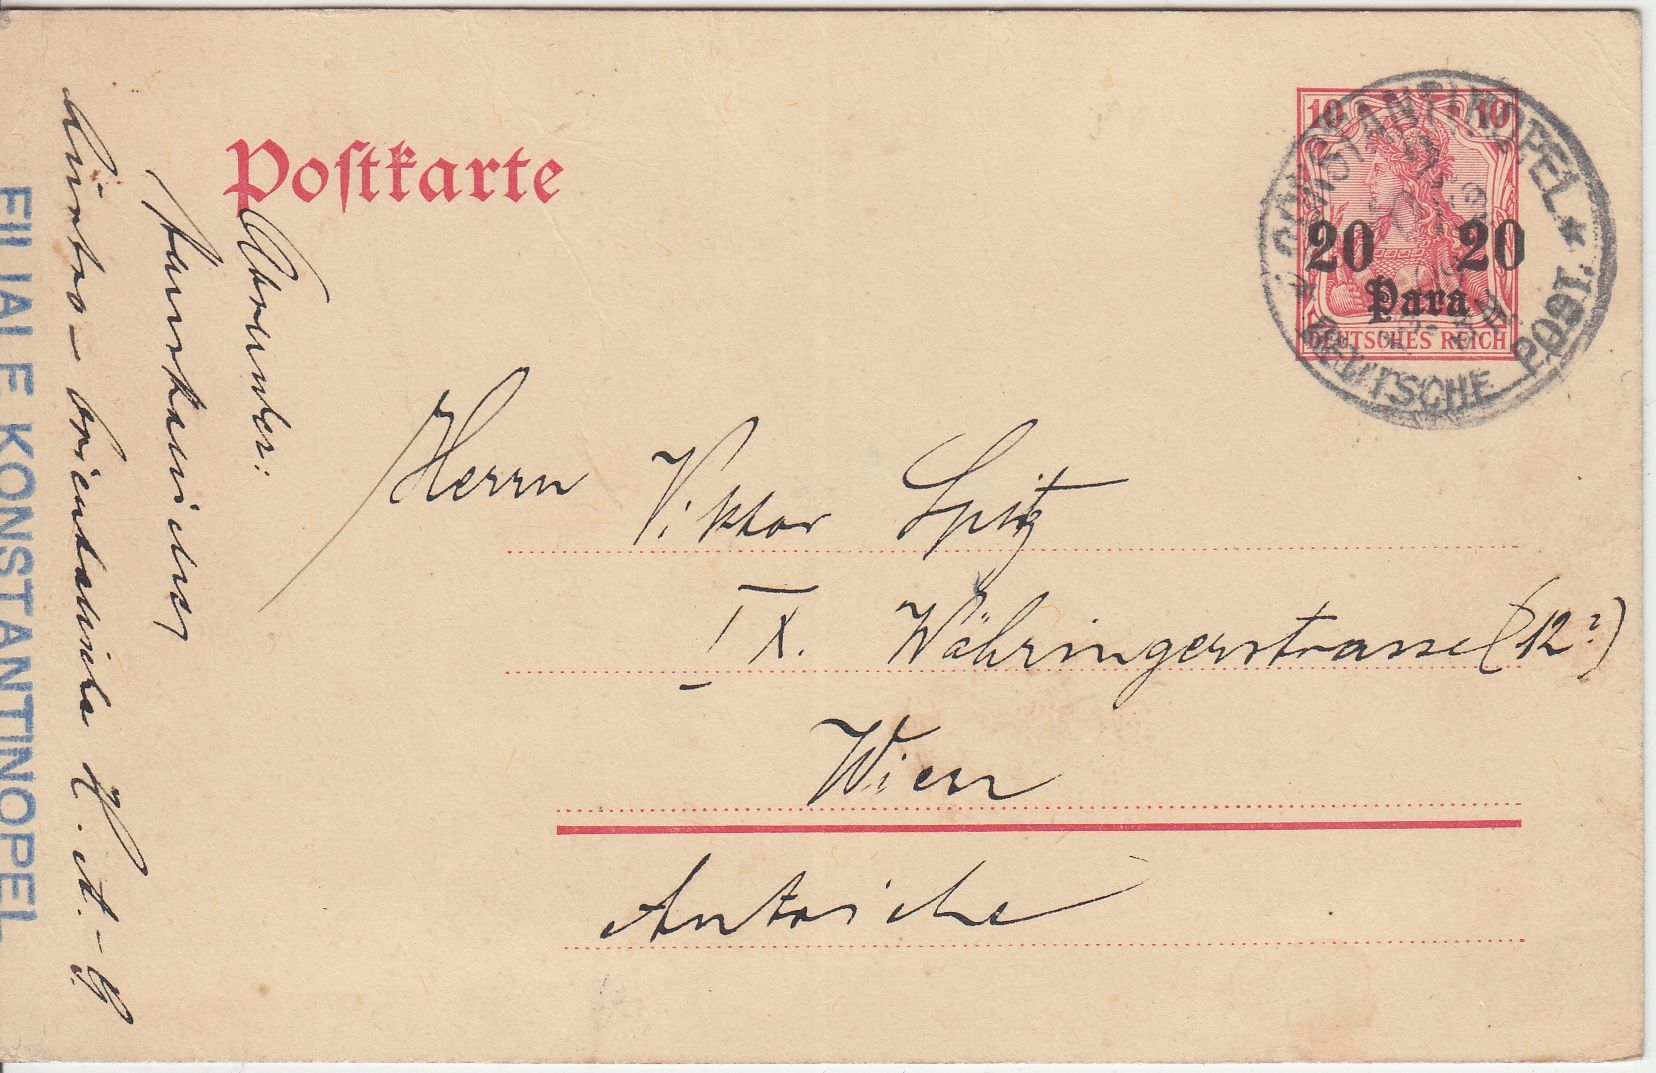 Postkarte
10 10
20 20
Para
DEUTSCHES REICH
* CONSTANTINOPEL * 1.
DEUTSCHE POST
Herrn Viktor Spitz
IX. Währingerstrasse (12?)
Wien
Autriche
Absender:
orientalische H. A.-G
FILIALE KONSTANTINOPEL